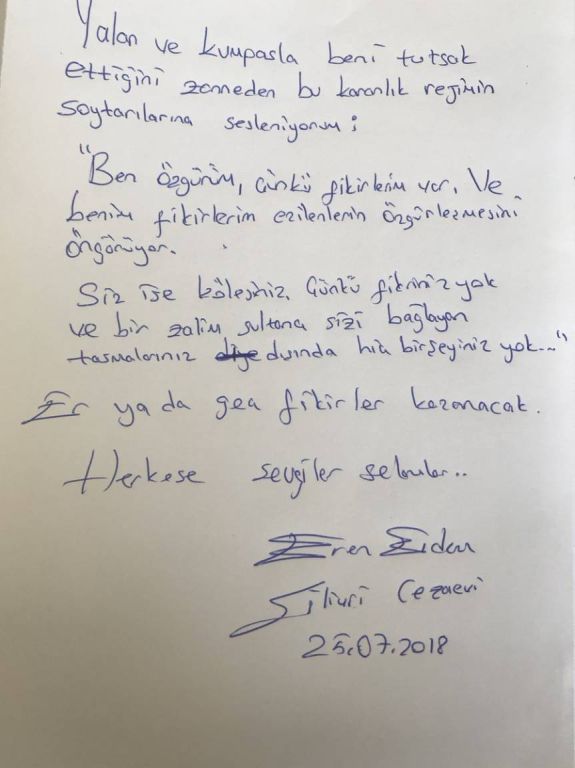 Yalan ve kumpasla beni tutsak
ettiğini zanneden bu karanlık rejimin
soytarılarına sesleniyorum;
"Ben özgürüm, çünkü fikirlerim var. Ve
benim fikirlerim ezilenlerin özgürleşmesini
öngörüyor.
Siz ise kölesiniz. Çünkü fikriniz yok
ve bir zalim sultana sizi bağlayan
tasmalarınız dışında hiç birşeyiniz yok..."
Er ya da geç fikirler kazanacak.
Herkese sevgiler selamlar..
Eren
Silivri Cezaevi
25.07.2018